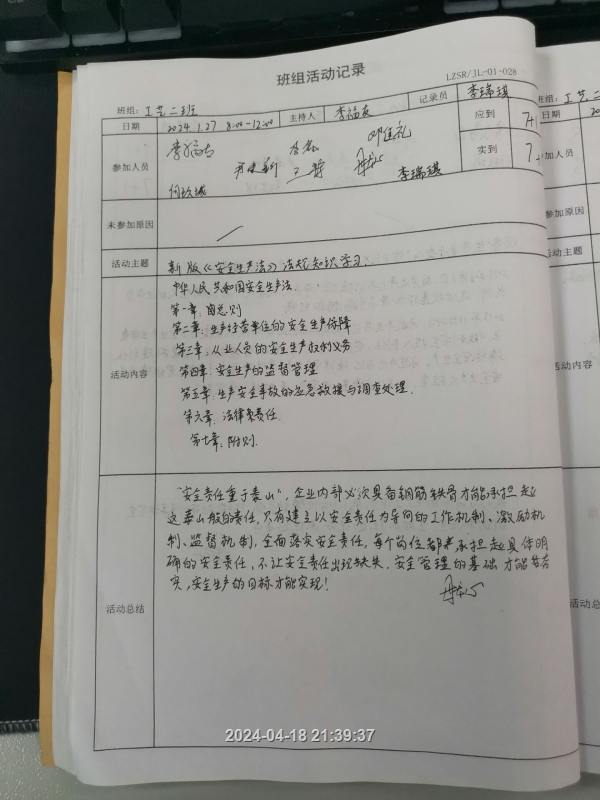 班组活动记录
LZSR/JL-01-028
班组: 工艺二班
日期 2024.1.27 8:00-12:00 主持人 李福友 记录员 李瑞琪
应到 7人
实到 7人
参加人员
李瑞琪
未参加原因
活动主题 新版《安全生产法》法规知识学习.
活动内容
中华人民共和国安全生产法.
第一章: 总则
第二章: 生产经营单位的安全生产保障
第三章: 从业人员的安全生产权利义务
第四章: 安全生产的监督管理
第五章: 生产安全事故的应急救援与调查处理.
第六章: 法律责任
第七章: 附则.
活动总结
"安全责任重于泰山", 企业内部必须具备钢筋铁骨才能承担起
这泰山般的责任, 只有建立以安全责任为导向的工作机制、激励机
制、监督机制, 全面落实安全责任, 每个岗位都承担起具体明
确的安全责任, 不让安全责任出现缺失, 安全管理的基础才能夯
实, 安全生产的目标才能实现!
班组: 工艺二
日期 20
参加人员
未参加原因
活动主题
活动内容
活动总
2024-04-18 21:39:37